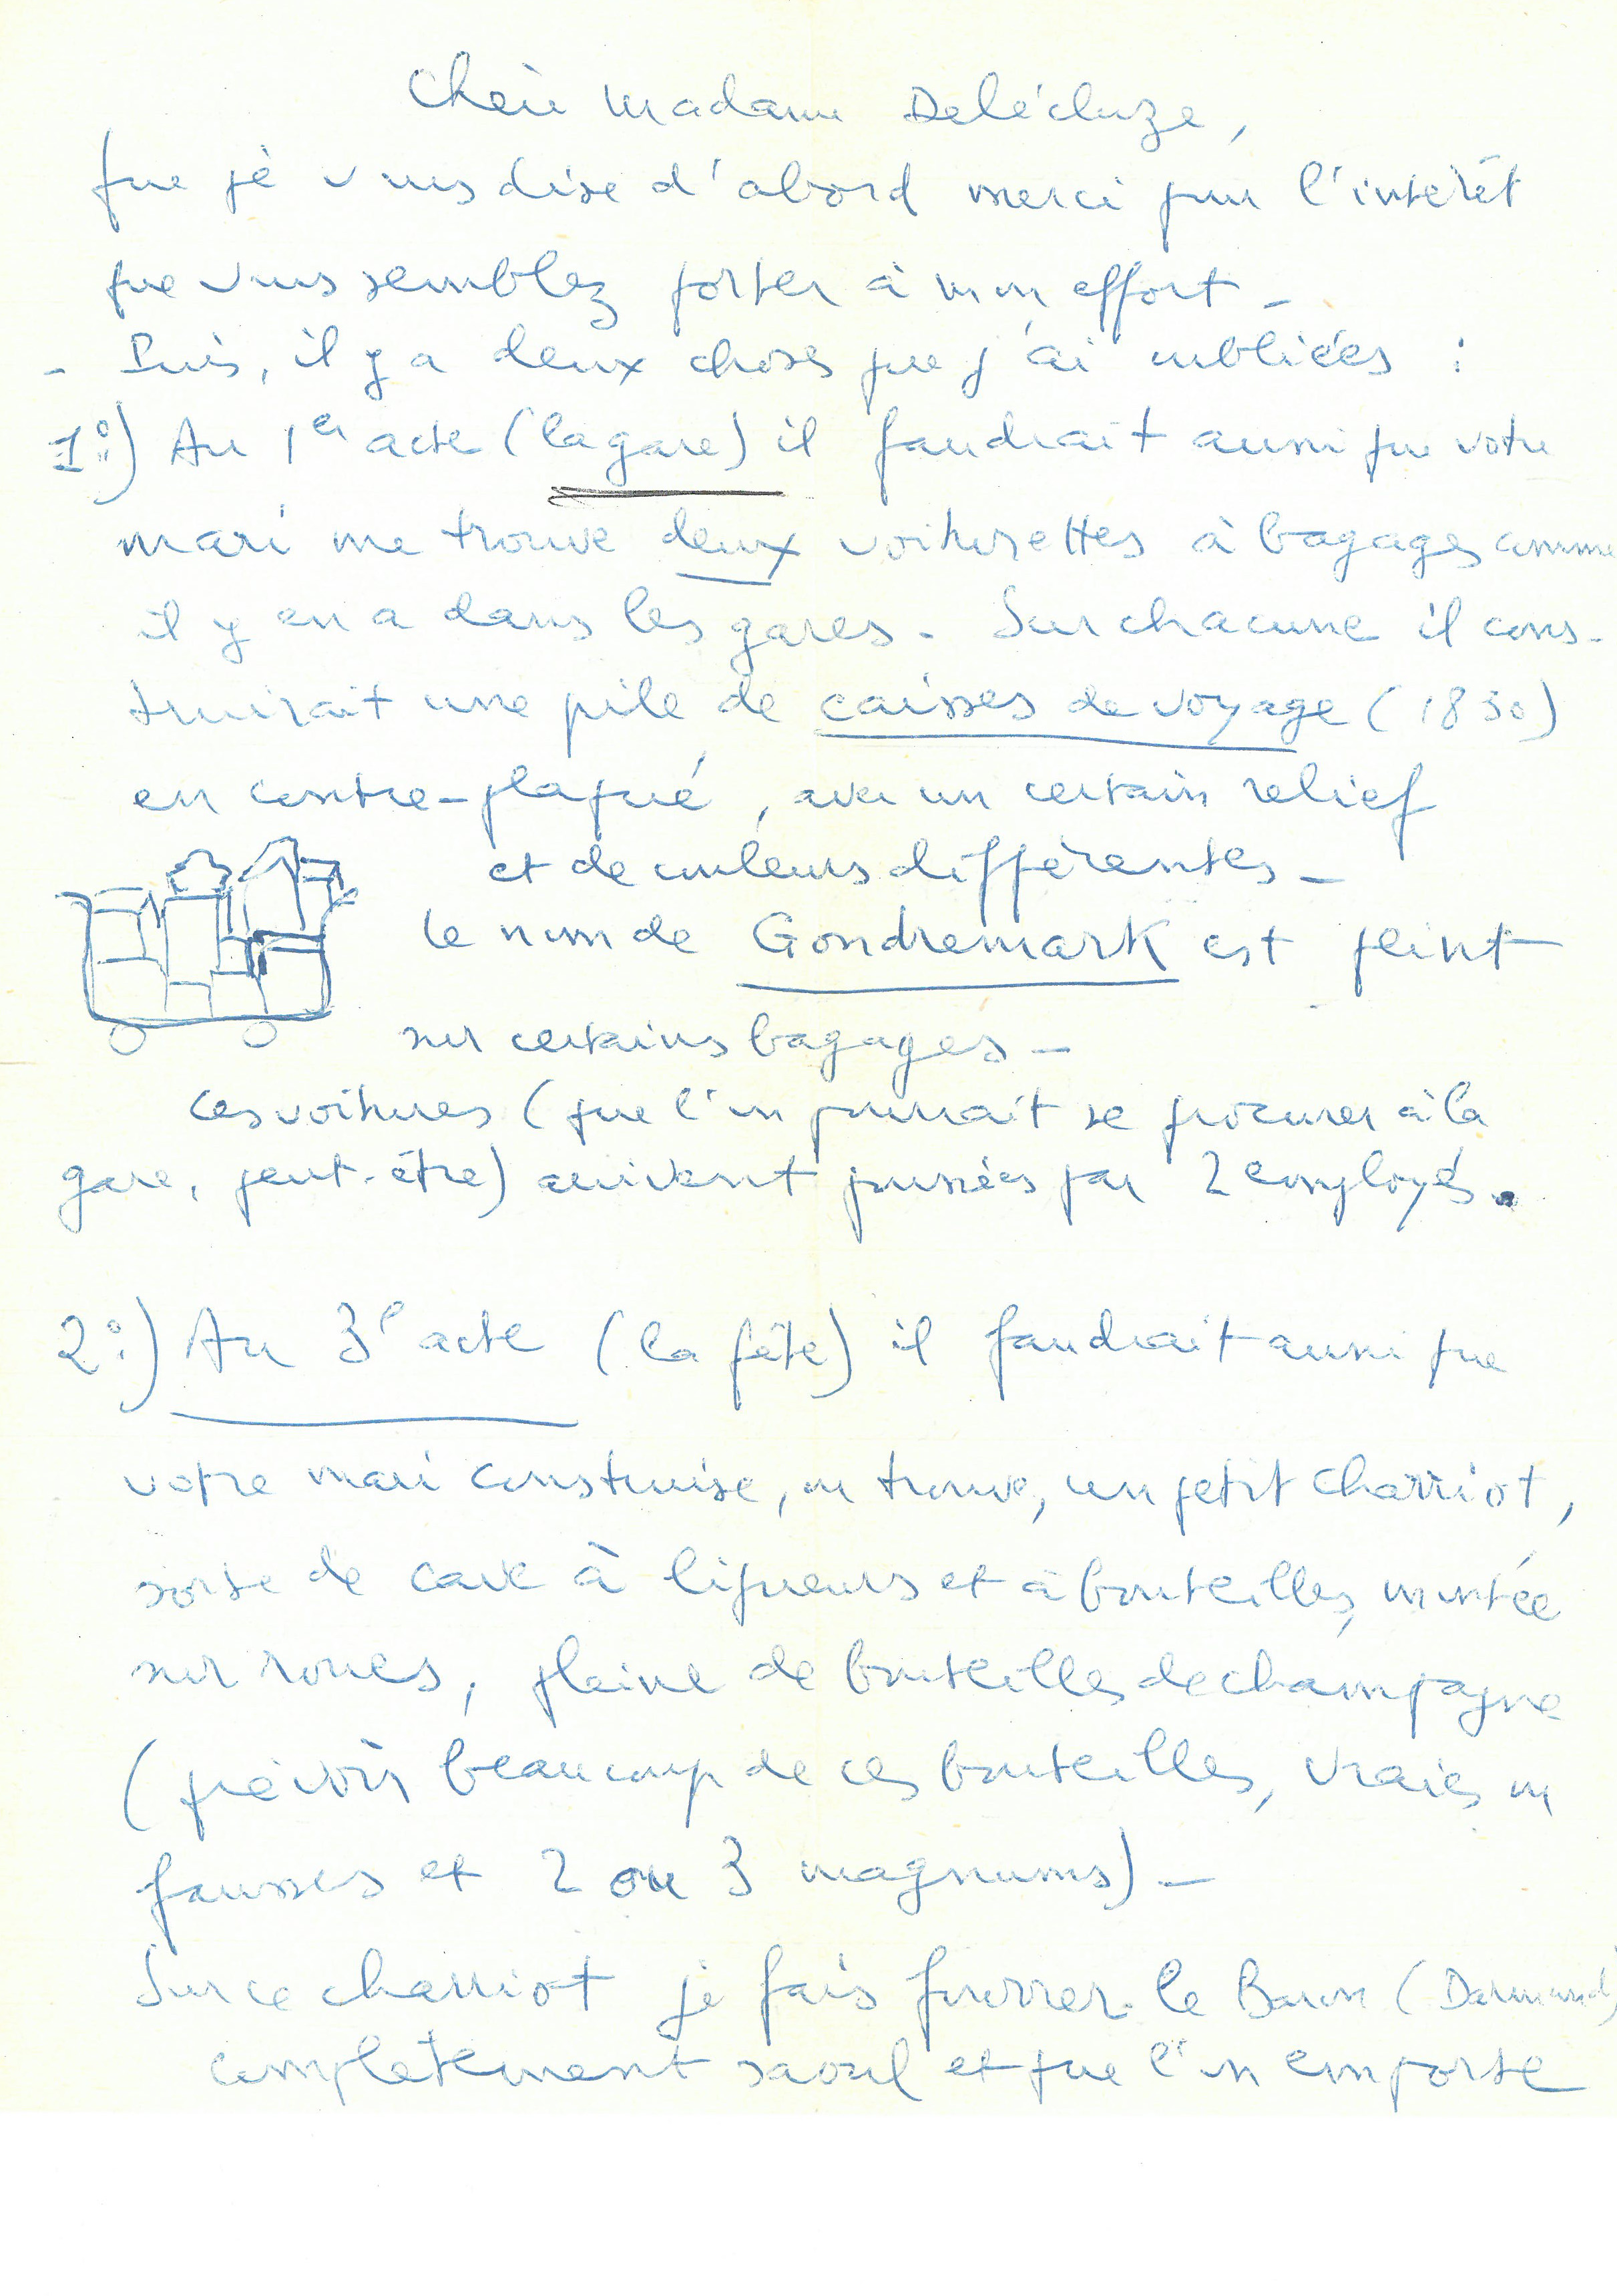 Chère Madame Delécluze,
que je vous dise d'abord merci pour l'intérêt
que vous semblez porter à mon effort -
- Puis, il y a deux choses que j'ai oubliées :
1°:) Au 1er acte (la gare) il faudrait aussi que votre
mari me trouve deux voiturettes à bagages comme
il y en a dans les gares - Sur chacune il cons-
truirait une pile de caisses de voyage (1830)
en contre-plaqué, avec un certain relief
et de couleurs différentes -
le nom de Gondremark est peint
sur certains bagages -
Ces voitures (que l'on pourrait se procurer à la
gare, peut-être) arrivent poussées par 2 employés.
2°:) Au 3e acte (la fête) il faudrait aussi que
votre mari construise, ou trouve, un petit charriot,
sorte de cave à liqueurs et à bouteilles, montée
sur roues, pleine de bouteilles de champagne
(prévoir beaucoup de ces bouteilles, vraies ou
fausses et 2 ou 3 magnums) -
Sur ce charriot je fais fourrer le Baron
complètement saoul et que l'on emporte